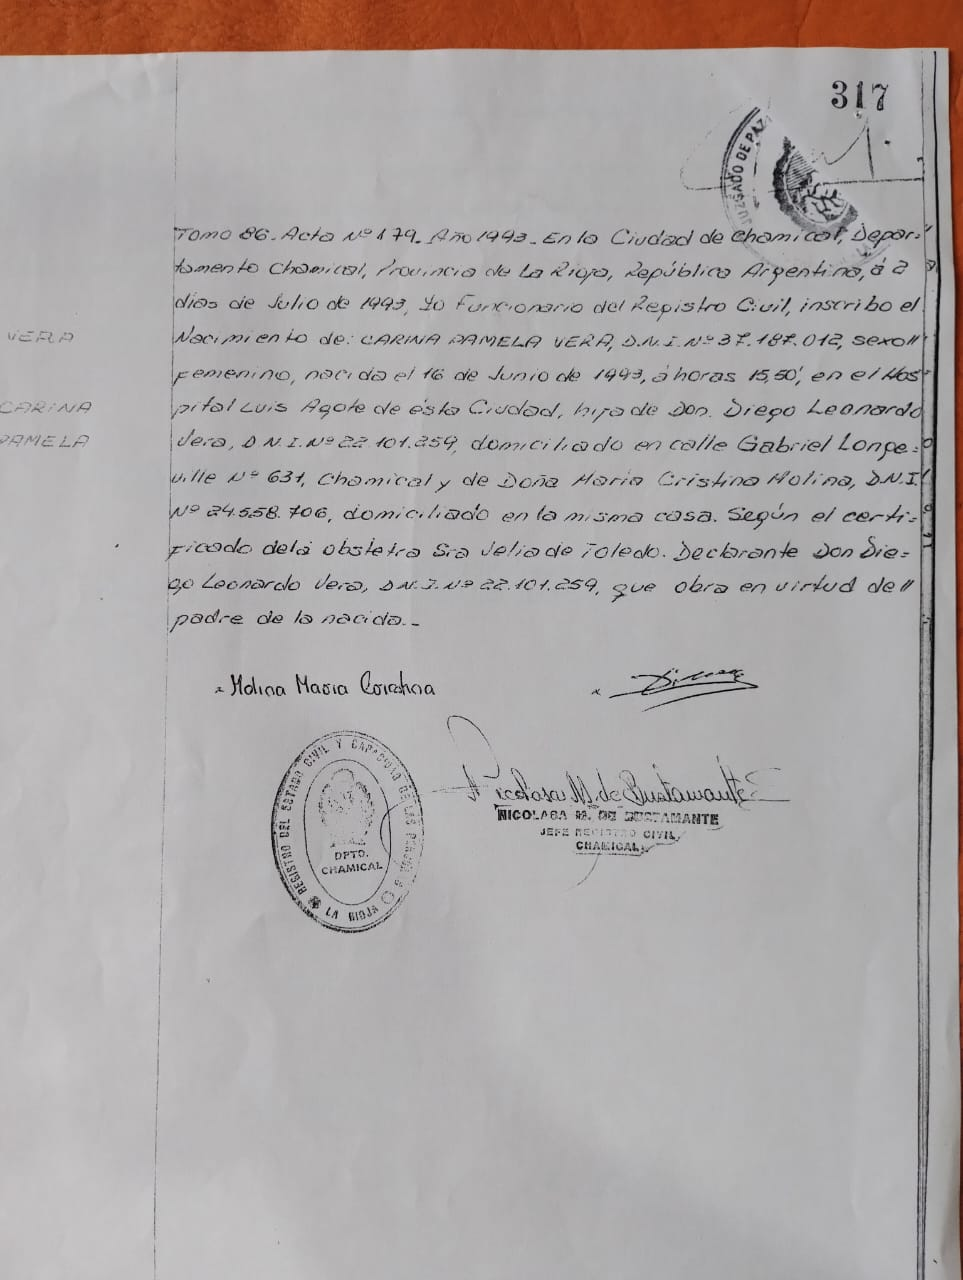 317
JUZGADO DE PAZ
Tomo 86. Acta Nº 179. Año 1993. En la Ciudad de Chamical, Depar-
tamento Chamical, Provincia de La Rioja, República Argentina, á 2
días de Julio de 1993, Yo Funcionario del Registro Civil, inscribo el
VERA
Nacimiento de: CARINA PAMELA VERA, D.N.I. Nº 37.187.012, sexo//
femenino, nacida el 16 de Junio de 1993, á horas 15,50', en el Hos-
CARINA
pital Luis Agote de ésta Ciudad, hija de Don. Diego Leonardo
PAMELA
Vera, D.N.I. Nº 22.101.259, domiciliado en calle Gabriel Longe-
ville Nº 631, Chamical y de Doña María Cristina Molina, D.N.I.
Nº 24.558.706, domiciliado en la misma casa. Según el certi-
ficado de la obstetra Sra Velia de Toledo. Declarante Don Die-
go Leonardo Vera, D.N.I. Nº 22.101.259, que obra en virtud de//
padre de la nacida.-
x Molina Maria Coristina
x
REGISTRO DEL ESTADO CIVIL Y CAPACIDAD DE LAS PERSONAS
DPTO.
CHAMICAL
LA RIOJA
Nicolasa M. de Bustamante
NICOLASA M. DE BUSTAMANTE
JEFE REGISTRO CIVIL
CHAMICAL